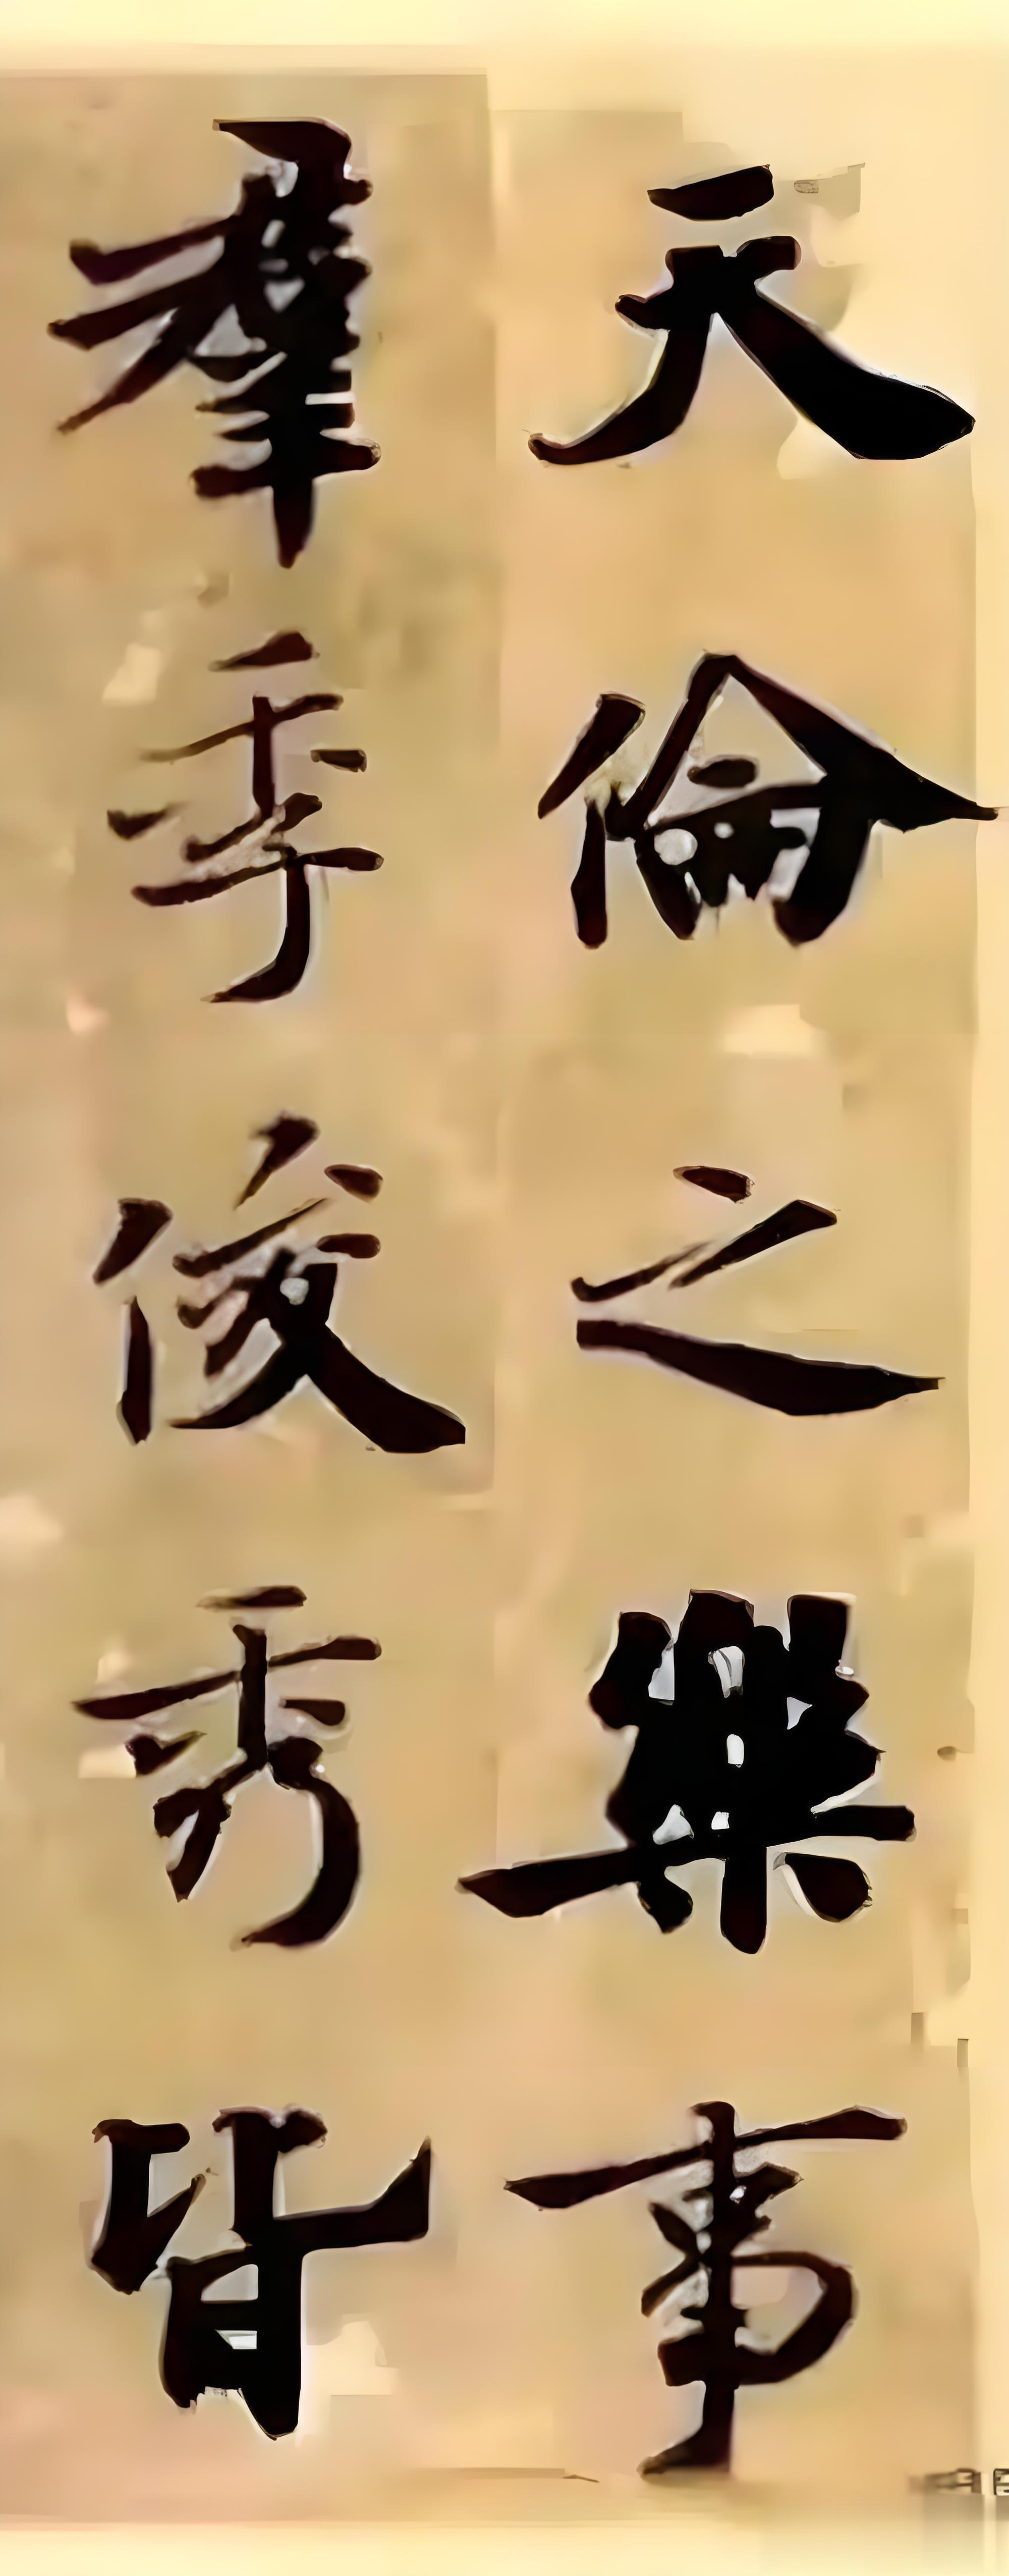 天倫之樂事
羣季俊秀皆